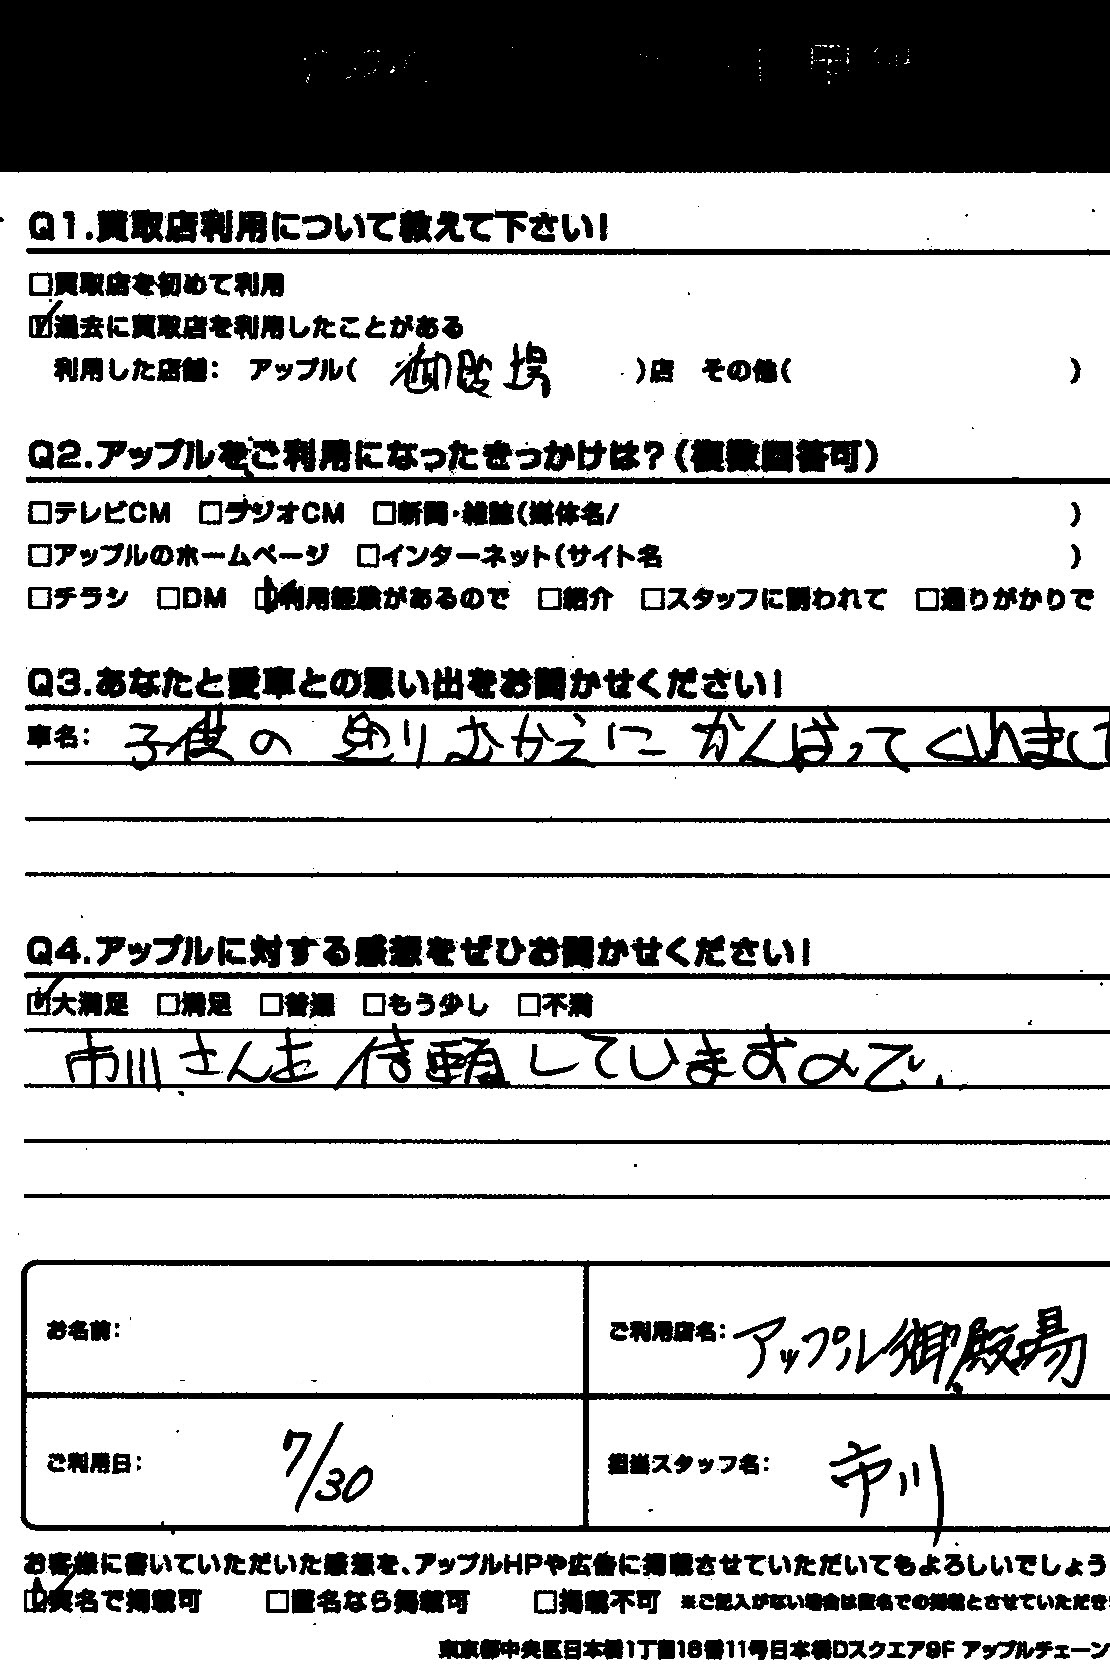 Q1.買取店利用について教えて下さい!
□買取店を初めて利用
☑過去に買取店を利用したことがある
利用した店舗: アップル( 御殿場 )店 その他( )
Q2.アップルをご利用になったきっかけは?(複数回答可)
□テレビCM □ラジオCM □新聞・雑誌(媒体名/ )
□アップルのホームページ □インターネット(サイト名 )
□チラシ □DM ☑利用経験があるので □紹介 □スタッフに誘われて □通りがかりで
Q3.あなたと愛車との思い出をお聞かせください!
車名: 子供の送りむかえにがんばってくれまして
Q4.アップルに対する感想をぜひお聞かせください!
☑大満足 □満足 □普通 □もう少し □不満
市川さんを信頼していますので、
お名前:
ご利用店名: アップル御殿場
ご利用日: 7/30
担当スタッフ名: 市川
お客様に書いていただいた感想を、アップルHPや広告に掲載させていただいてもよろしいでしょう
☑実名で掲載可 □匿名なら掲載可 □掲載不可 ※ご記入がない場合は匿名での掲載とさせていただき
東京都中央区日本橋1丁目16番11号日本橋Dスクエア9F アップルチェーン